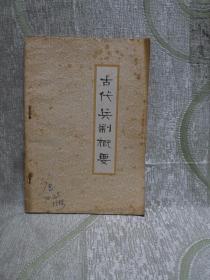 古代兵制概要